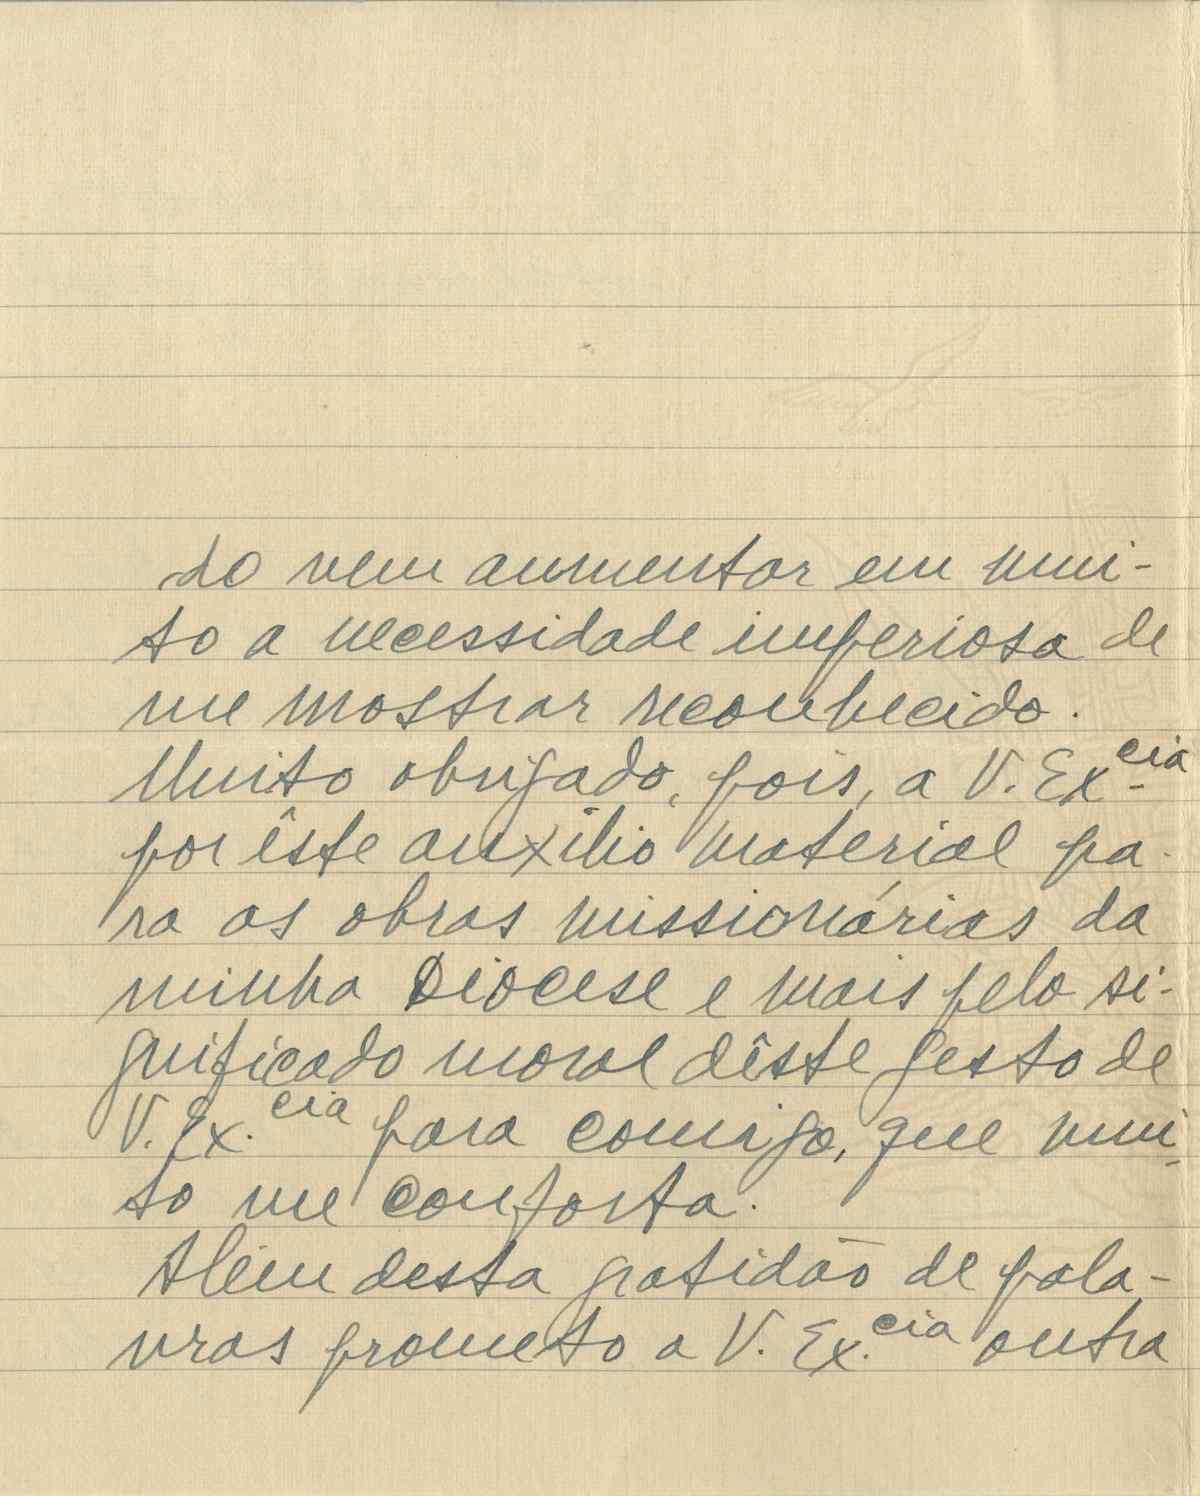 do vem aumentar em mui-
to a necessidade imperiosa de
me mostrar reconhecido.
Muito obrigado, pois, a V. Ex.cia
por êste auxílio material pa-
ra as obras missionárias da
minha Diocese e mais pelo si-
gnificado moral dêste gesto de
V. Ex.cia para comigo, que mui-
to me conforta.
Além desta gratidão de pala-
vras prometo a V. Ex.cia outra